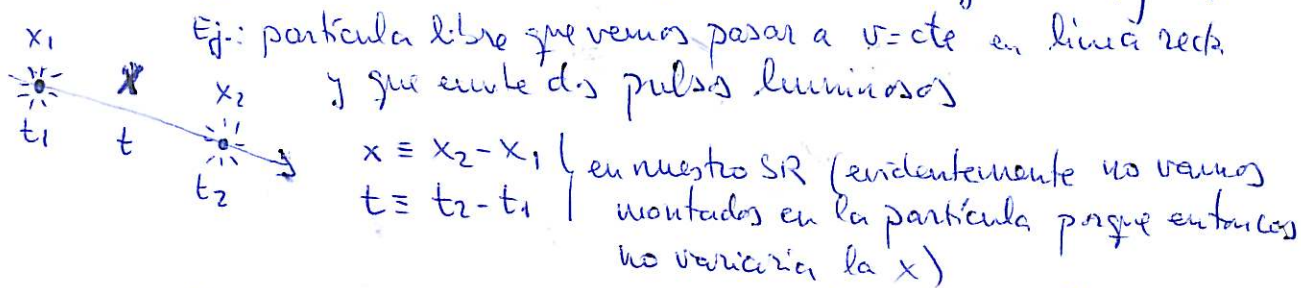 Ej.: partícula libre que vemos pasar a v=cte en línea recta
y que emite dos pulsos luminosos
x₁
t₁
x
t
x₂
t₂
x ≡ x₂-x₁
t ≡ t₂-t₁
en nuestro SR (evidentemente no vamos
montados en la partícula porque entonces
no variaría la x)